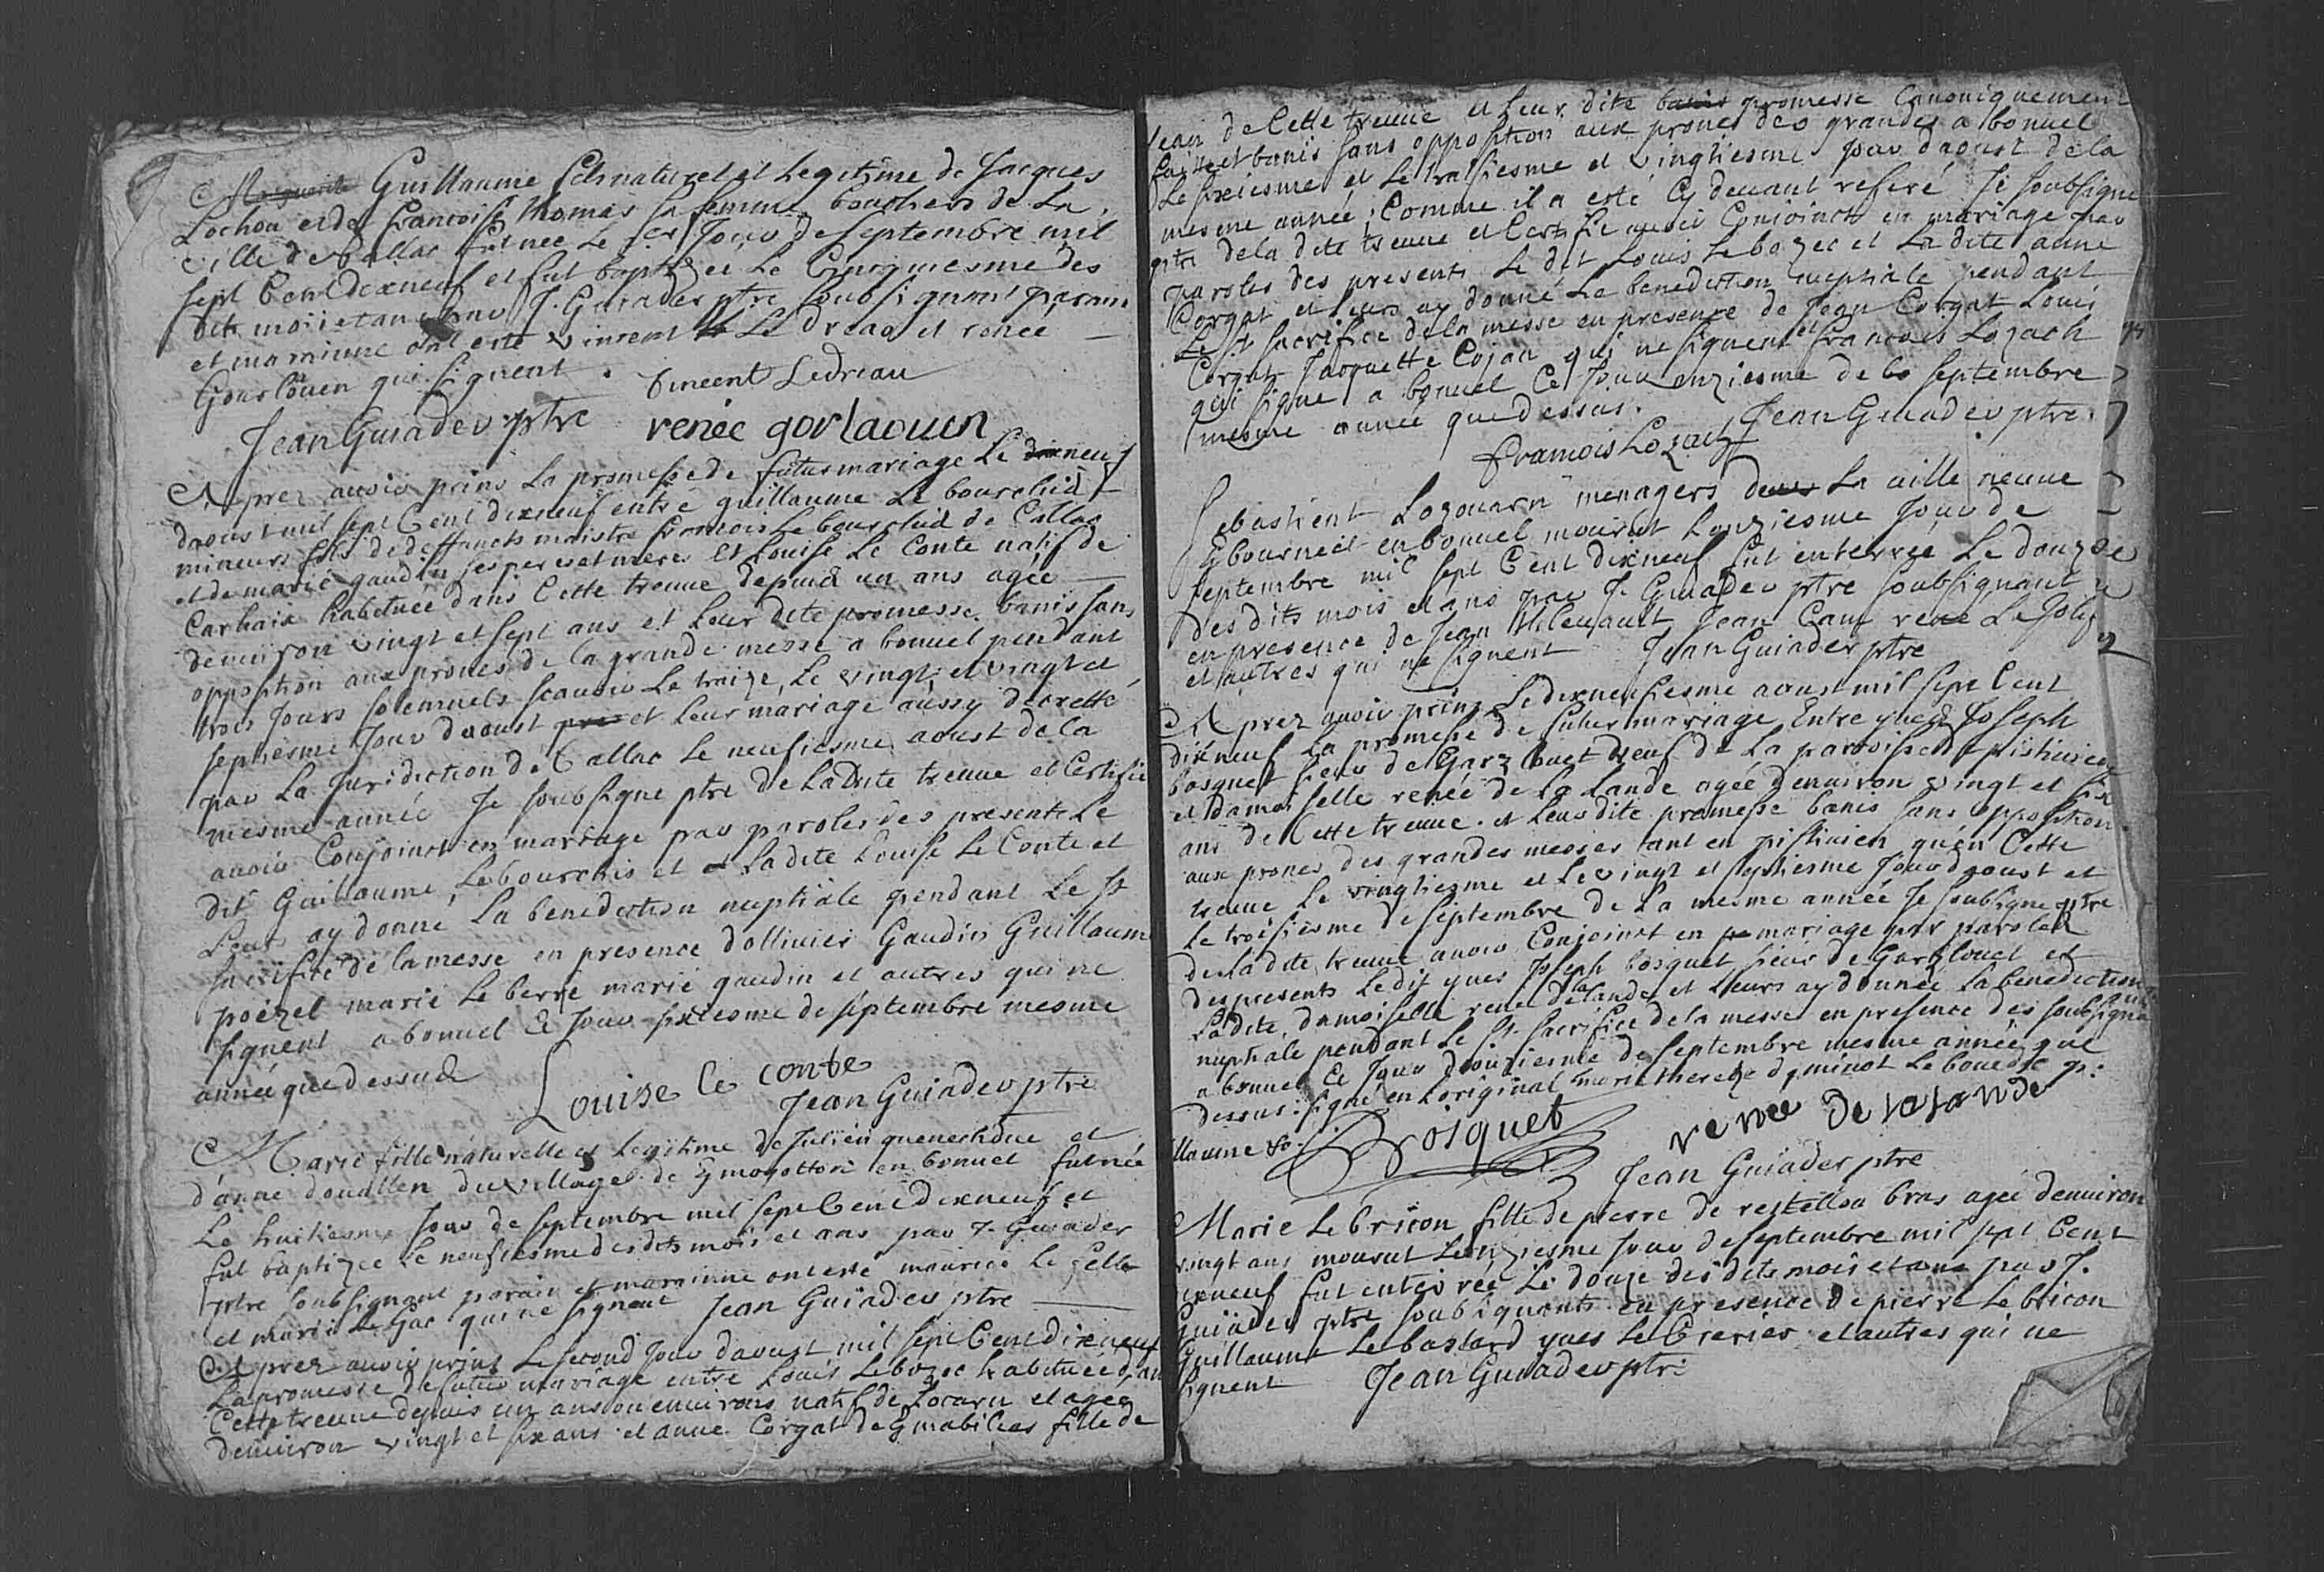 Guillaume fils naturel et Legitime de Jacques
Lochou et de francoise thomas sa femme bouchers de La
ville de Callac fut née Le 1er Jour de septembre mil
sept Cent dixneuf et fut baptizee Le Cinquiesme des
dits mois et an par J. Guiader ptre soubsignant parain
et marainne ont esté vincent Le Dreau et renée
Gourlouen qui signent . vincent Ledreau
Jean Guiader ptre renée gorlaouen
Aprez auoir prins La promesse de futur mariage Le dixneuf
daoust mil sept Cent dixneuf entre guillaume Le bourchid
mineurs fils de deffuncts maistre francois Le bourchid de Callac
et de marie gaudin ses pere et mere et Louise Le Conte natif de
Carhaix habituée dans Cette treuue depuis un ans agée
denuiron vingt et sept ans et Leur dite promesse banis sans
opposition aux prones de la grande messe a bonuel pendant
trois Jours solemnels scauoir Le traize, Le vingt et vingt et
septiesme Jour daoust et Leur mariage aussy decretté
par La Juridiction de Callac Le neufiesme aoust de la
mesme année Je soubsigne ptre de Ladite treuue et Certifie
auoir Conjoinct en mariage par paroles des presents Le
dit Guillaume Lebourchis et Ladite Louise Le Conte et
Leurs ay donné La benediction nuptiale pendant Le st
sacrifice de la messe en presence dollinier Gaudin Guillaume
poëzel marie Le berre marie gaudin et autres qui ne
signent a bonuel Ce Jour sixiesme de septembre mesme
année que dessus
Louise le conte
Jean Guiader ptre
Marie fille naturelle et Legitime de Julien quenechdue et
d'anne douallen du village de en bonuel fut née
Le huitiesme Jour de septembre mil sept Cent dixneuf et
fut baptizee Le neufiesme des dits mois et ans par J. Guiader
ptre soubsignant parain et marainne ont esté maurice Le
et marie Le Gac qui ne signent Jean Guiader ptre
Aprez auoir prins Le second Jour daoust mil sept Cent dixneuf
La promesse de futur mariage entre Louis Lebozec habituée dans
Cette treuue depuis un ans ou enuirons natif de Locarn et agée
denuiron vingt et six ans et anne Corgat de fille de
Jean de Cette treuue et Leur dite banis promesse Canoniquement
faitte et banis sans opposition aux prones des grandes a bonuel
Le sixiesme et Le traisiesme et vingtiesme Jour daoust de la
mesme année, Comme il a esté Cy deuant referé Je soubsigne
ptre de la dite treuue et Certifie auoir Conjoinct en mariage par
paroles des presents Le dit Louis Lebozec et La dite anne
Corgat et Leurs ay donné La benediction nuptiale pendant
Le st sacrifice de la messe en presence de Jean Corgat Louis
Corgat Jacquette Cojan qui ne signent et francois Lozach
qui signe a bonuel Ce Jour onziesme de septembre
mesme année que dessus.
francois Lozach Jean Guiader ptre
Sebastient Lozouarn menagers La uille neuue
en bonuel mourut Lonziesme Jour de
septembre mil sept Cent dixneuf fut enterrée Le douze
des dits mois et ans par J. Guiader ptre soubsignant
en presence de Jean Jean Cam rene Le Jolif
et autres qui ne signent Jean Guiader ptre
Aprez auoir prins Le dixneufiesme aoust mil sept Cent
dixneuf La promesse de futur mariage Entre yues Joseph
bosquet sieur de Garzlouet de La paroisse de pistiuien
et damoiselle renée de La Lande agée denuiron vingt et six
ans de Cette treuue . et Leur dite promesse banis sans opposition
aux prones des grandes messes tant en pistinien quén Cette
treuue Le vingtiesme et Le vingt et septiesme Jour daoust et
Le troisiesme de septembre de La mesme année Je soubsigne ptre
de la dite treuue auoir Conjoinct en mariage par paroles
des presents Le dit yues Joseph bosquet sieur de Garzlouet et
Ladite damoiselle renée de la Lande et Leurs ay donnée La benediction
nuptiale pendant Le st. sacrifice de la messe en presence des soubsignants
a bonuel Ce Jour douziesme de septembre mesme année que
dessus : signé en Loriginal marie thereze dominot Le bouedec
Bosquet renee De la lande
Jean Guiader ptre
Marie Le bricon fille de pierre de restellou bras agée denuiron
vingt ans mourut Lonziesme Jour de septembre mil sept Cent
dixneuf fut enterrée Le douze des dits mois et ans par J.
Guiader ptre soubsignants en presence de pierre Le bricon
Guillaume Le bastard yues Le Crerier et autres qui ne
signent Jean Guiader ptre